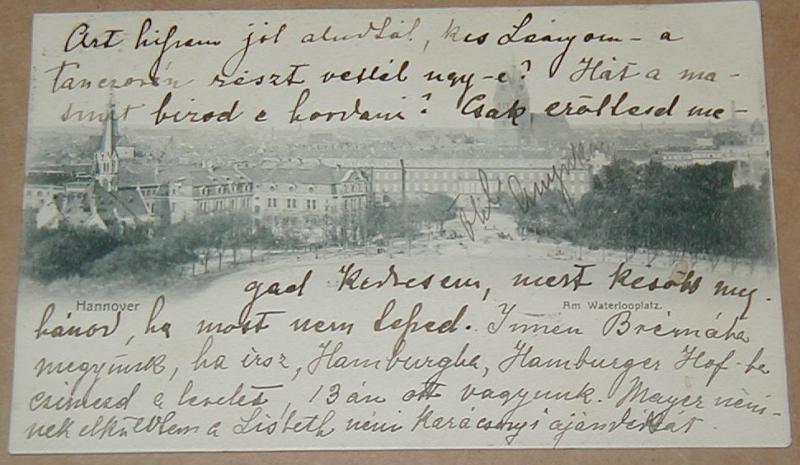 Azt hiszem jól aludtál, kis Leányom – a
tanczorán részt vettél ugy-e? Hát a ma-
birod e hordani? Csak erőltesd me-
gad Kedvesem, mert később meg-
Hannover
Am Waterlooplatz.
bánod, ha most nem teped. Innen Brémába
megyünk, ha irsz, Hamburgba, Hamburger Hof-ba
cimezd a levelet, 13 án ott vagyunk. Mayer néni-
nek elküldtem a Lisbeth néni karácsonyi ajándékát.